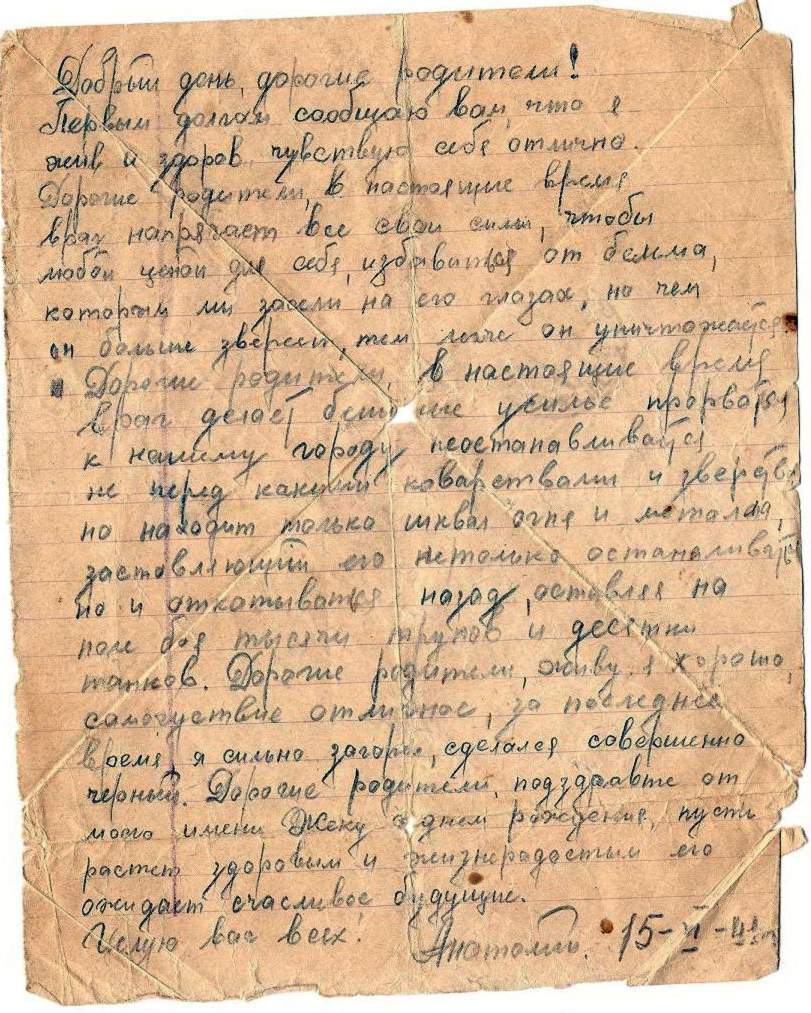 Добрый день, дорогие родители!
Первым долгом сообщаю вам, что я
жив и здоров, чувствую себя отлично.
Дорогие родители, в настоящие время
враг напрягает все свои силы, чтобы
любой ценой для себя, избавиться от бельма,
которым мы засели на его глазах, но чем
он больше звереет, тем легче он уничтожается.
Дорогие родители, в настоящие время
враг делает бешеные усилье прорватся
к нашему городу неостанавливаётся
не перед какими коварствами и зверств
но находит только шквал огня и металла,
заставляющий его нетолько останавливать
но и откатыватся назад, оставляя на
поле боя тысячи трупов и десятки
танков. Дорогие родители, живу я хорошо,
самочуствие отличное, за последнее
время я сильно загорел, сделался совершенно
черный. Дорогие родители, подздравте от
моего имени Жеку с днем рождения, пусть
растет здоровым и жизнерадостым его
ожидает счасливое будущие.
Целую вас всех! Анатолий. 15-VI-42г